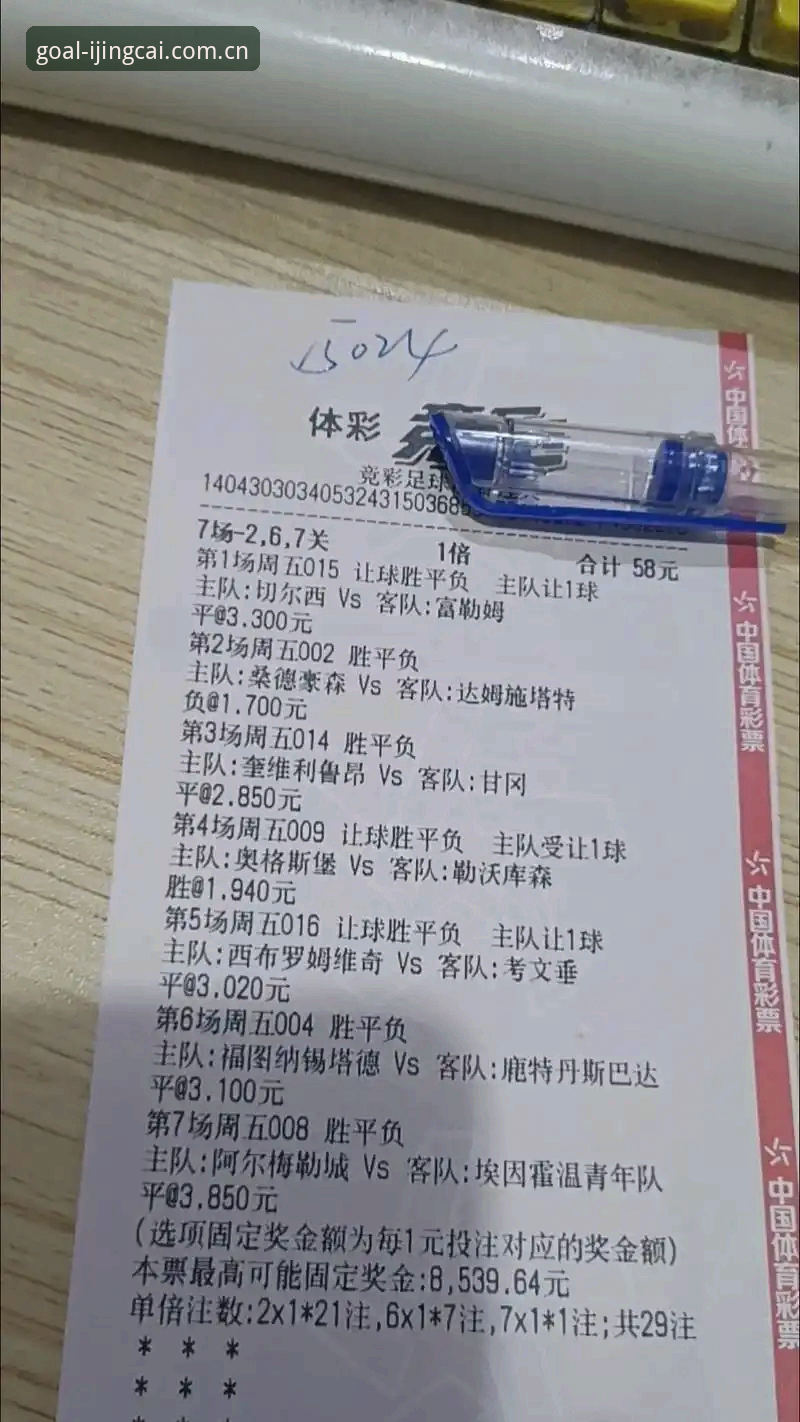 goal-ijingcai.com.cn
15024
体彩
竞彩足球
140430303405324315036
7场-2,6,7关 1倍 合计 58元
第1场周五015 让球胜平负 主队让1球
主队:切尔西 Vs 客队:富勒姆
平@3.300元
第2场周五002 胜平负
主队:桑德豪森 Vs 客队:达姆施塔特
负@1.700元
第3场周五014 胜平负
主队:奎维利鲁昂 Vs 客队:甘冈
平@2.850元
第4场周五009 让球胜平负 主队受让1球
主队:奥格斯堡 Vs 客队:勒沃库森
胜@1.940元
第5场周五016 让球胜平负 主队让1球
主队:西布罗姆维奇 Vs 客队:考文垂
平@3.020元
第6场周五004 胜平负
主队:福图纳锡塔德 Vs 客队:鹿特丹斯巴达
平@3.100元
第7场周五008 胜平负
主队:阿尔梅勒城 Vs 客队:埃因霍温青年队
平@3.850元
(选项固定奖金额为每1元投注对应的奖金额)
本票最高可能固定奖金:8,539.64元
单倍注数:2x1*21注,6x1*7注,7x1*1注;共29注
* * *
* * *
中国体
中国体育彩票
中国体育彩票
中国体育彩票